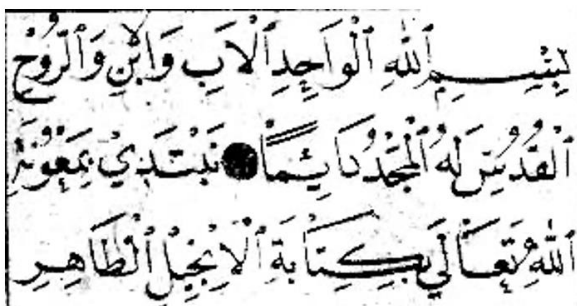 بِسْمِ اللهِ الْوَاحِدِ الْاَبِ وَابْنِ وَالرُّوْحِ
الْقُدُسِ لَهُ الْمَجْدُ دَايِمًا ● نَبْتَدِيْ بِمَعْوُنَةِ
اللهِ تَعَالَي بِكِتَابَةِ الْاِنْجِيْلِ الْطَاهِرِ